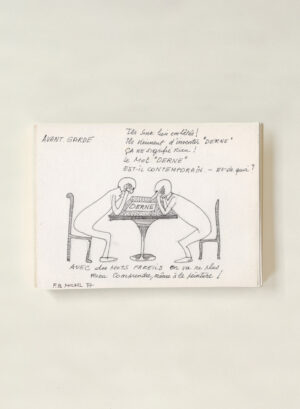 AVANT GARDE
Ils sont bien embêtés!
Ils viennent d'inventer "DERNE"
ÇA NE signifie Rien!
Le Mot "DERNE"
EST-iL CONTEMPORAIN. — et de quoi?
DERNE
AVEC des MOTS PAREILS on va ne plus
rien comprendre, même à la peinture!
P.B. 77